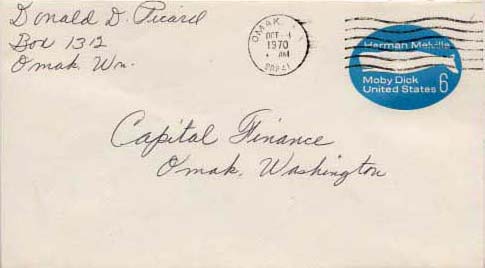 Donald D. Picard
Box 1312
Omak, Wn.
OMAK,
OCT
1970
AM
98841
Herman Melville
Moby Dick
United States 6
Capital Finance
Omak, Washington